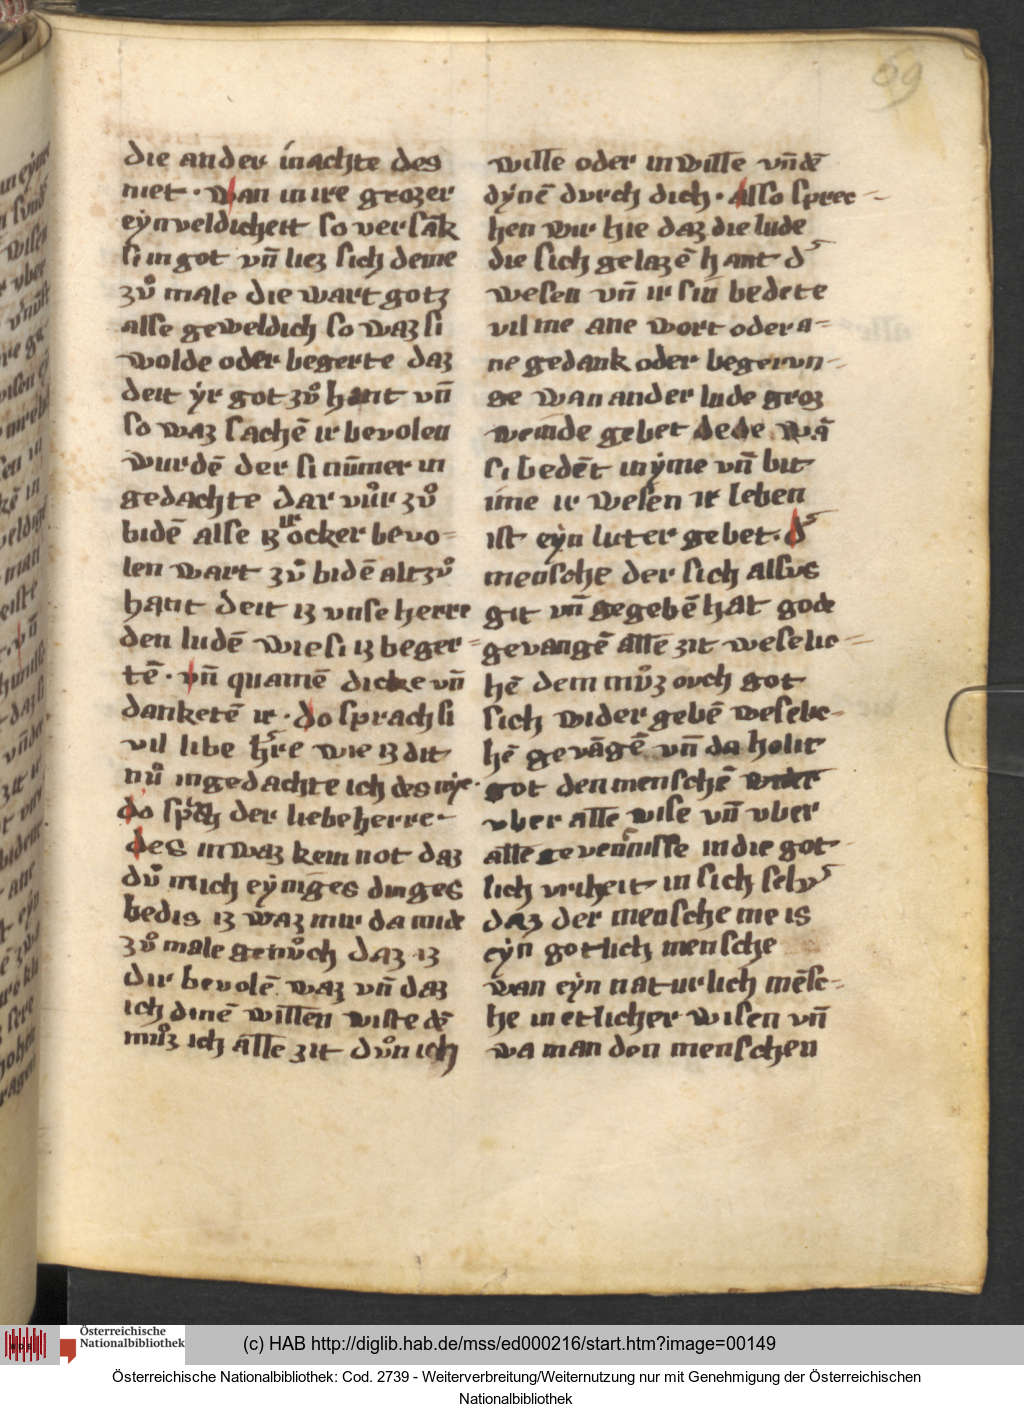 69
die ander in achte des
niet · wan in ire grozer
eynveldicheit so versāk
si in got vn̄ liez sich deme
zů male die wart gotz
alse geweldich so waz si
wolde oder begerte daz
deit yr got zů hant vn̄
so waz sachē ir bevolen
wurdē der si nūmer in
gedachte dar vůr zů
bidē alse ir ocker bevo-
len wart zů bidē altzů
hant deit iz vnse herre
den ludē wie si iz beger-
tē · vn̄ quamē dicke vn̄
danketē ir · do sprach si
vil libe h're wie iz dit
nů in gedachte ich des nye ·
do sprach der liebe herre
des in waz kein not daz
dů mich eyniges dinges
bedis iz waz mir da mide
zů male genůch daz iz
dir bevolē waz vn̄ daz
ich dinē willen wiste dē
můz ich alle zit důn ich
wille oder in wille vn̄ dē
dynē dvrch dich · Also sprec-
hen wir hie daz die lude
die sich gelazē hant d'
wesen vn̄ ir sin bedete
vil me ane wort oder a-
ne gedank oder begervn-
ge wan ander lude groz
wernde gebet dede wā
si bedēt in yme vn̄ bit
ime ir wesen ir leben
ist eyn luter gebet · d'
mensche der sich alsvs
git vn̄ gegebē hat gode
gevangē alle zit weselic-
hē dem můz ovch got
sich wider gebē weselic-
hē gevāgē vn̄ da holit
got den menschē wider
vber alle wise vn̄ vber
alle gevenknisse in die got-
lich vriheit in sich selv'
daz der mensche me is
eyn gotlich mensche
wan eyn naturlich mēsc-
he in etlicher wisen vn̄
wa man den menschen
(c) HAB http://diglib.hab.de/mss/ed000216/start.htm?image=00149
Österreichische
Nationalbibliothek
Österreichische Nationalbibliothek: Cod. 2739 - Weiterverbreitung/Weiternutzung nur mit Genehmigung der Österreichischen
Nationalbibliothek